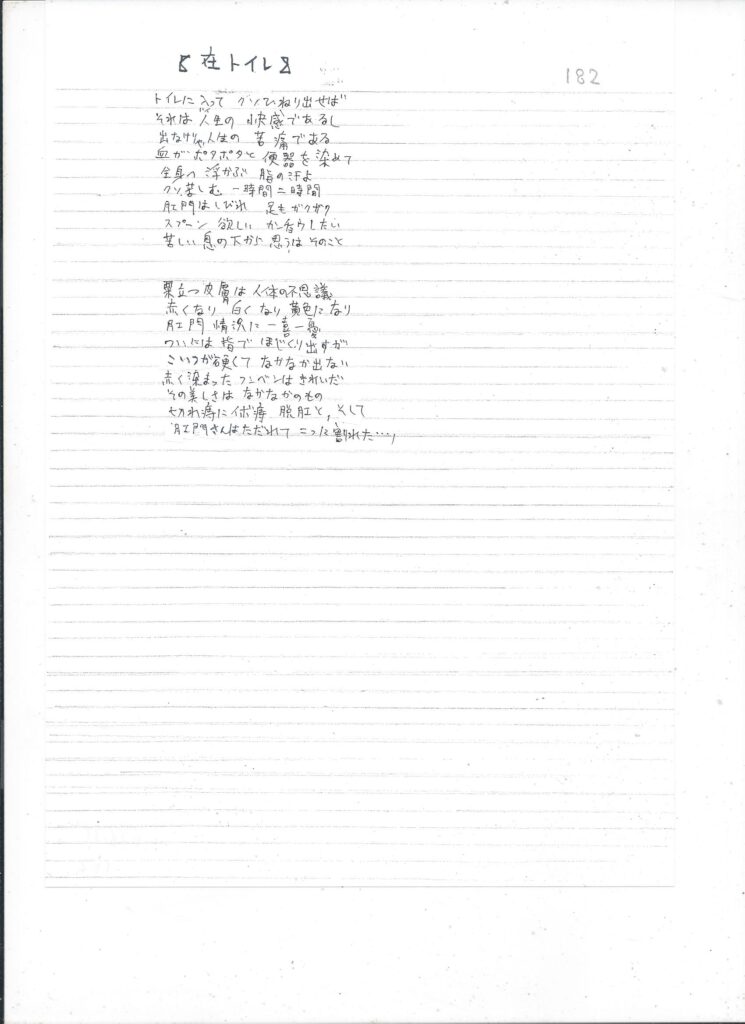 【在トイレ】
182
トイレに入って クソひねり出せば
それは人生の 快感であるし
出なけりゃ人生の 苦痛である
血がポタポタと 便器を染めて
全身へ浮かぶ 脂の汗よ
クソ苦しむ 一時間二時間
肛門はしびれ 足もガクガク
スプーン 欲しい カン腸したい
苦しい息の下から 思うはそのこと
粟立つ皮膚は 人体の不思議
赤くなり 白くなり 黄色になり
肛門 情況に 一喜一憂
ついには 指で ほじくり出すが
こいつが硬くて なかなか出ない
赤く染まった フンベンは きれいだ
その美しさは なかなかのもの
切れ痔にイボ痔 脱肛と、そして
肛門さんはただれて 二つに割れた…、